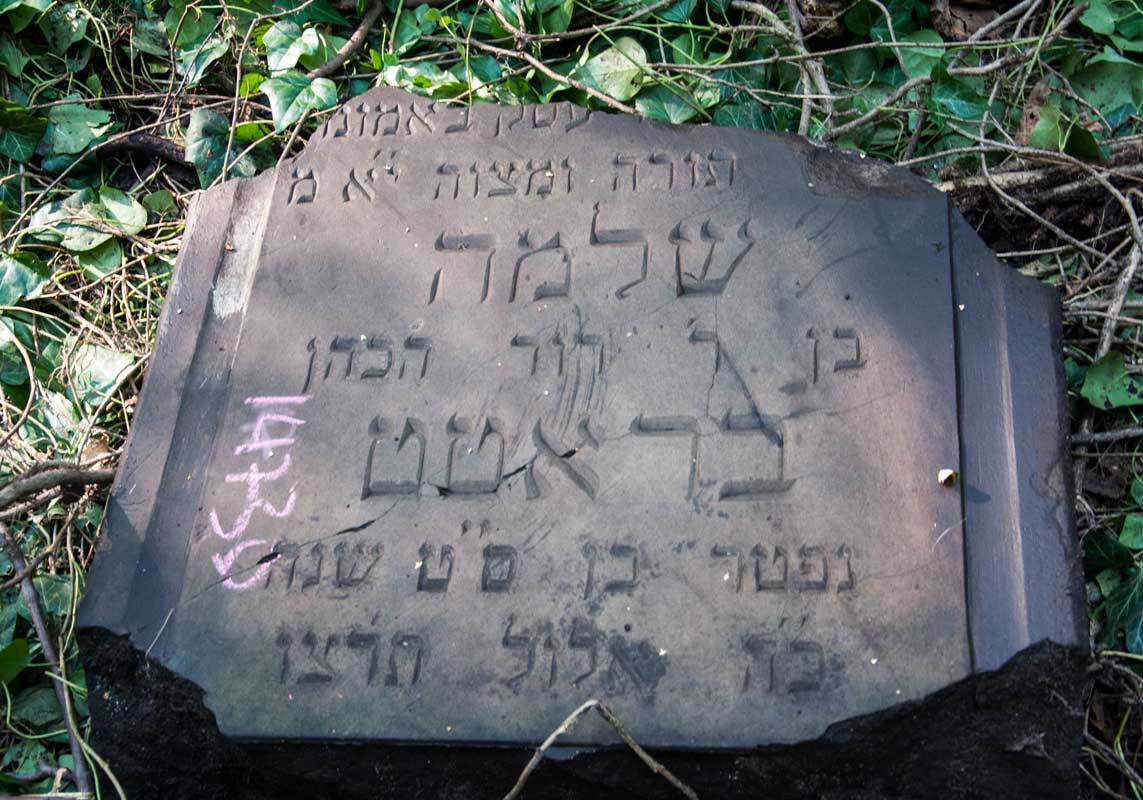 עסק באמונה
תורה ומצוה י״א מ
שלמה
בן ר דוד הכהן
בראטט
נפטר בן ס״ט שנה
כ״ח אלול תרצו
14739